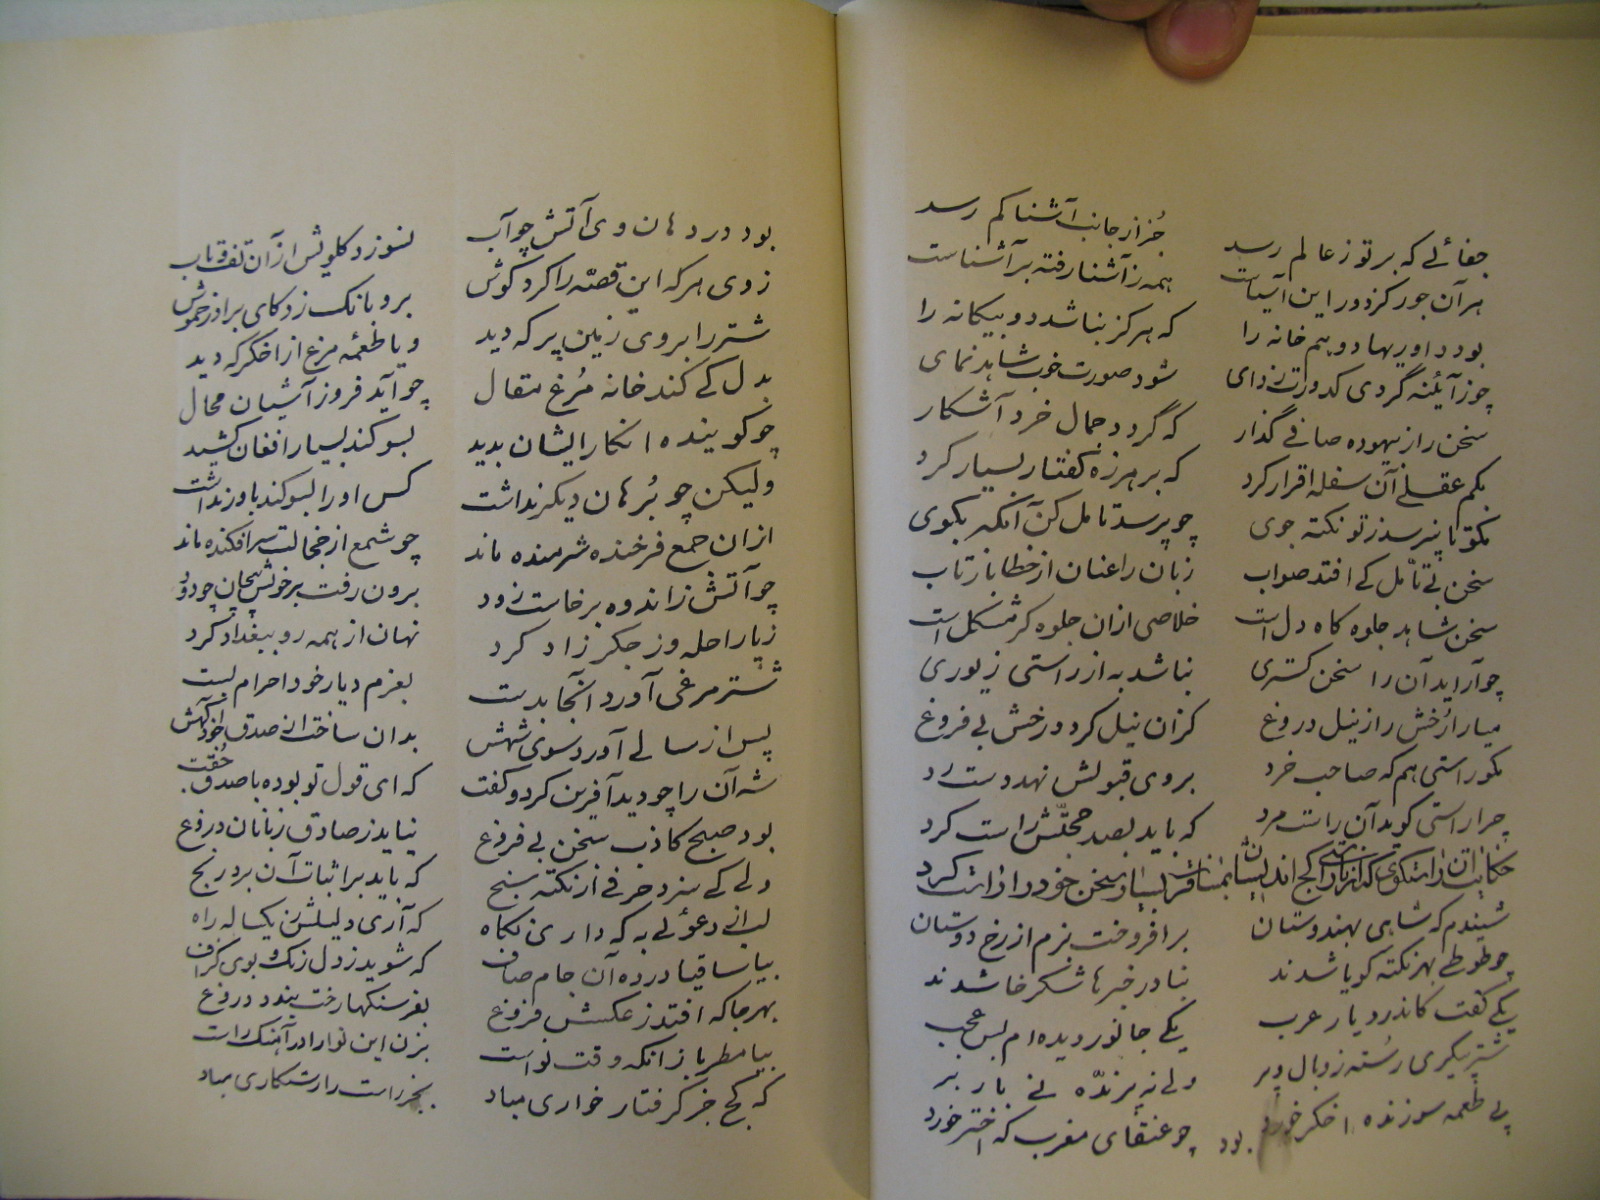 جفائے که بر تو ز عالم رسد جز از جانب آشنا کم رسد
هر آن جور کز دور این آسیات همه ز آشنا رفته بر آشناست
بود داوریها دو هم خانه را که هرگز نباشد دو بیگانه را
چو ز آئنه گردی کدورت زدای شود صورت خوب شاهد نمای
سخن را ز بیهوده صافے گذار که گردد جمال خرد آشکار
بکم عقلے آن سفله اقرار کرد که بر هرزه گفتار بسیار کرد
مگو تا نپرسد ز تو نکته جوی چو پرسد تامل کن آنگه بگوی
سخن بی تأمل کے افتد صواب زبان را عنان از خطا باز تاب
سخن شاهد جلوه گاه دل است خلاصی ازان جلوه گر مشکل است
چو آراید آن را سخن گستری نباشد به از راستی زیوری
میارا رخش را ز نیل دروغ کزان نیل گردد رخش بی فروغ
مگو راستی هم که صاحب خرد بروی قبولش نهد دست رد
چرا راستی گوید آن راست مرد که باید بصد محلّش راست کرد
حکایت آن راستگوی که از سخن خود را راست کرد
شنیدم که شاهی بهندوستان برافروخت بزم از رخ دوستان
چو طوطے بهر نکته گویا شدند بنادر خبرها شکرخا شدند
یکے گفت کاندر دیار عرب یکے جانور دیده ام بس عجب
شترپیکری رسته زو بال و پر ولے نه پرنده نے بار بر
پی طعمه سوزنده اخگر خورد بود چو عنقای مغرب که اختر خورد
بود در دهان وی آتش چو آب نسوزد گلویش از آن تف و تاب
ز وی هر که این قصّه را کرد گوش برو بانگ زد کای برادر خموش
شتر را بروی زمین پر که دید و یا طعمهٔ مرغ از اخگر که دید
بدل کے کند خانه مرغ مقال چو آید فروز آشیان محال
چو گوینده انکار ایشان بدید بسوگند بسیار افغان کشید
ولیکن چو برهان دیگر نداشت کس او را بسوگند باور نداشت
ازان جمع فرخنده شرمنده ماند چو شمع از خجالت سرافکنده ماند
چو آتش ز اندوه برخاست زود برون رفت بر خویش پیچان چو دود
ز پا راحله وز جگر زاد کرد نهان از همه رو ببغداد کرد
شترمرغی آورد آنجا بدست بعزم دیار خود احرام بست
پس از سالے آورد سوی شهش بدان ساخت از صدق خود آگهش
شه آن را چو دید آفرین کرد و گفت که ای قول تو بوده با صدق جفت
بود صبح کاذب سخن بی فروغ نیاید ز صادق زبانان دروغ
ولے کے سزد حرفے از نکته سنج که باید بر اثبات آن برد رنج
بسا نے دعوئے به که داری نگاه که آری دلیلش یکساله راه
بیا ساقیا درده آن جام صاف که شوید ز دل زنگ و بوی گزاف
بهر جا که افتد ز عکسش فروغ بفرسنگها رخت بندد دروغ
بیا مطربا زانکه وقت نواست بزن این نوا را در آهنگ راست
که کج جز گرفتار خواری مباد بجز راست را رستگاری مباد